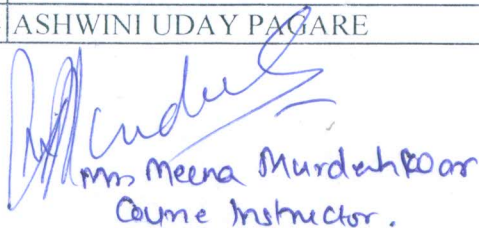 ASHWINI UDAY PAGARE
Mrs Meena Murdeshkar
Course Instructor.